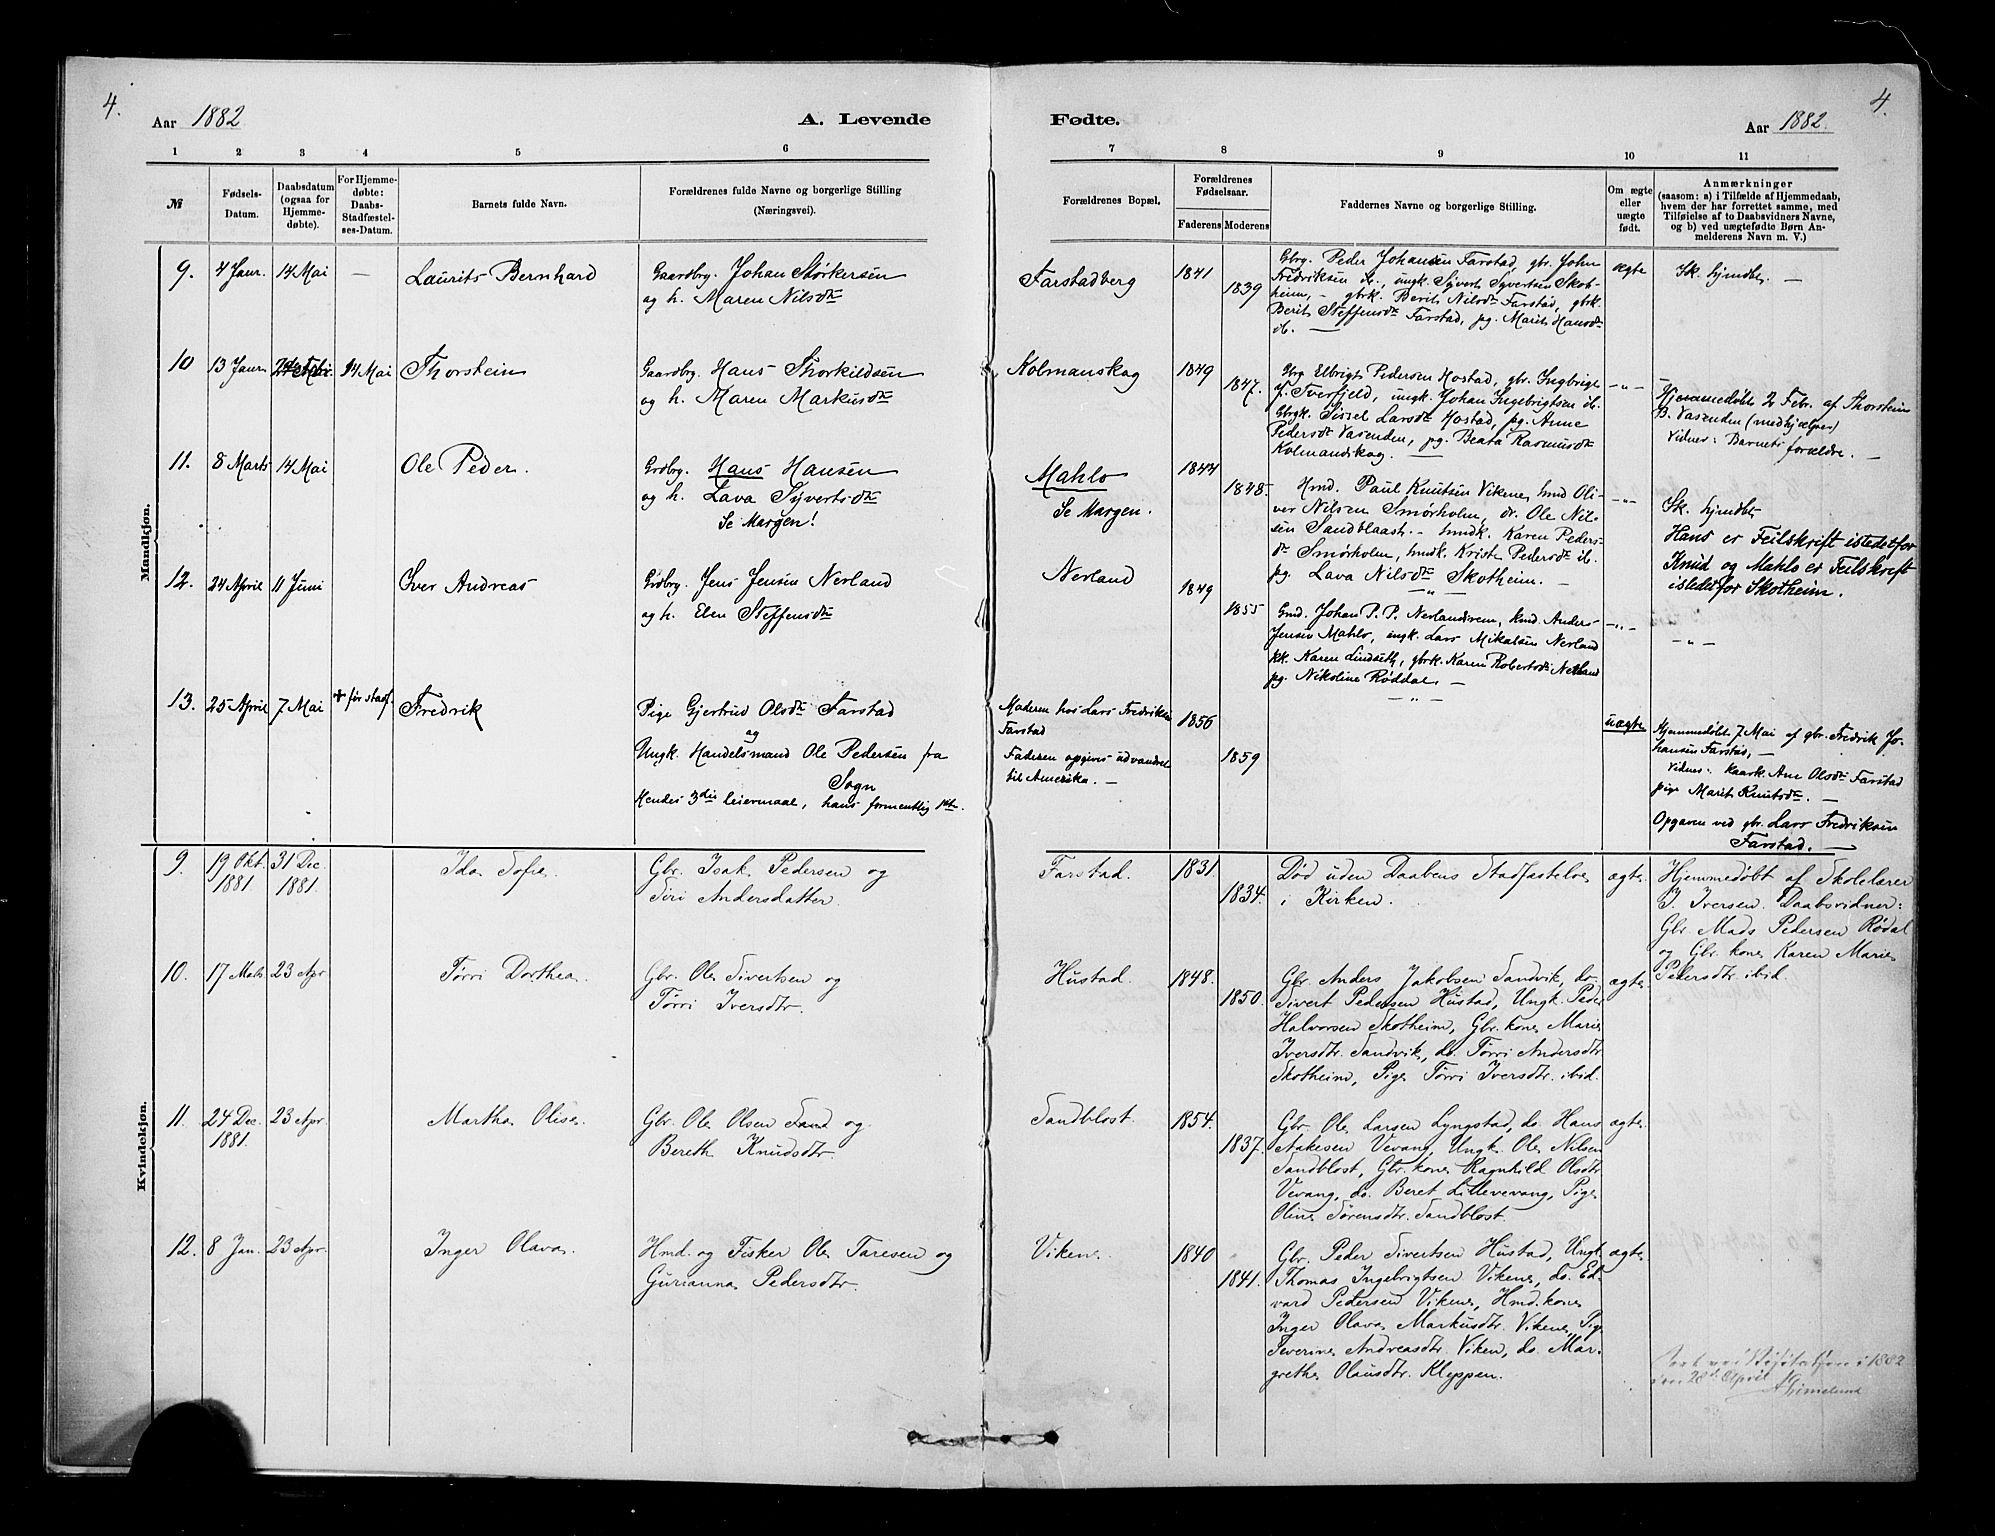 4.
4.
Aar 1882
A. Levende
Fødte.
Aar 1882.
1 2 3 4 5 6 7 8 9 10 11
№
Fødsels-
Datum.
Daabsdatum
(ogsaa for
Hjemme-
døbte).
For Hjemme-
døbte:
Daabs-
Stadfæstel-
ses-Datum.
Barnets fulde Navn.
Forældrenes fulde Navne og borgerlige Stilling
(Næringsvei).
Forældrenes Bopæl.
Forældrenes
Fødselsaar.
Faderens Moderens
Faddernes Navne og borgerlige Stilling.
Om ægte
eller
uægte
født.
Anmærkninger
(saasom: a) i Tilfælde af Hjemmedaab,
hvem der har forrettet samme, med
Tilføielse af to Daabsvidners Navne,
og b) ved uægtefødte Børn An-
melderens Navn m. V.)
Mandkjøn.
9. 4 Januar. 14 Mai — Laurits Bernhard
Gaardbr. Johan Størkersen
og h. Maren Nilsdtr
Farstadberg
1841
1839
Gbrg. Peder Johansen Farstad, gbr. John
Fredriksen ib., ungk. Syvert Syvertsen Skot-
heim, — gbrk. Berit Nilsdtr Farstad, gbrk.
Berit Steffensdtr Farstad, pg. Marit Hansdtr
ib. —
ægte
Sk. hjmdbt. —
10 13 Januar 14 Mai Thorstein
Gaardbrg. Hans Thorkildsen
og h. Maren Markusdtr
Kolmanskog
1849
1847.
Gbrg Elbrigt Pedersen Hostad, gbr. Ingbrigt
J. Tverfjeld, ungk. Johan Ingebrigtsen ib.
Gbrgk. Sissel Larsdtr Hostad, pg. Anne
Pedersdtr Vasenden, pg. Beata Rasmusdtr
Kolmandskog. —
—„—
Hjemmedøbt 2 Febr. af Thorstein
B. Vasenden (medhjælper)
Vidner: Barnets forældre. —
11. 8 Marts 14 Mai Ole Peder.
Grdbrg. Hans Hansen
og h. Lava Syvertsdtr
Se Margen!
Mahlo
Se Margen.
1844
1848.
Hmd. Paul Knutsen Vikene, hmd Oli-
ver Nilsen Smørholm, dr. Ole Nil-
sen Sandblaast. — hmdk. Karen Peders-
dtr Smørholm, hmdk. Kristi Pedersdtr ib.
pg. Lava Nilsdtr Skotheim. —
—„—
Sk. hjmdbt
Hans er Feilskrift istedetfor
Knud og Mahlo er Feilskrift
istedetfor Skotheim.
12. 24 April 11 Juni Iver Andreas
Grdbrg. Jens Jensen Nerland
og h. Elen Steffensdtr
Nerland
1849
1855
Gmd. Johan P. P. Nerlandsvem, kmd. Anders
Jensen Mahlo, ungk. Lars Mikalsen Nerland
kk. Karen Lindseth, gbrk. Karen Robertsdtr Nerland
pg. Nikoline Røddal. —
—„—
—„—
13. 25 April 7 Mai + før stadf. Fredrik
Pige Gjertrud Olsdtr Farstad
og
Ungk. Handelsmand Ole Pedersen fra
Sogn
Hendes 3die leiermaal, hans formentlig 1ste.
Moderen hos Lars Fredriksen
Farstad
Faderen opgives udvandret
til Amerika. —
1856
1859
uægte
Hjemmedøbt 7 Mai af gbr. Fredrik Jo-
hansen Farstad, —
Vidner: kaark Ane Olsdtr Farstad
pige Marit Knutsdtr. —
Opgaven ved gbr. Lars Fredriksen
Farstad. —
Kvindekjøn.
9. 19 Okt. 1881. 31 Dec. 1881. Ida Sofie.
Gbr. Isak Pedersen og
Siri Andersdatter.
Farstad.
1831
1834.
Død uden Daabens Stadfæstelse
i Kirken.
ægte
Hjemmedøbt af Skolelærer
J. Iversen. Daabsvidner:
Gbr. Mads Pedersen Rødal
og Gbr. kone Karen Marie
Pedersdtr. ibid.
10. 17 Mats 23 Apr Tørri Dorthea
Gbr. Ole Sivertsen og
Tørri Iversdtr.
Hustad.
1848.
1850.
Gbr. Anders Jakobsen Sandvik, do.
Sivert Pedersen Hustad, Ungk. Peder
Halvorsen Skotheim, Gbr. kone Marie
Iversdtr. Sandvik, do. Tørri Andersdtr.
Skotheim, Pige Tørri Iversdtr. ibid.
ægte
11. 24 Dec. 1881. 23 Apr Martha Olise.
Gbr. Ole Olsen Sand og
Bereth Knudsdtr.
Sandblost.
1854.
1837.
Gbr. Ole Larsen Lyngstad, do. Hans
Aakesen Vevang, Ungk. Ole Nilsen
Sandblost, Gbr. kone Ragnhild Olsdtr.
Vevang, do. Beret Lillevevang, Pige
Oline Sørensdtr. Sandblost.
ægte
12. 8 Jan. 23 Apr. Inger Olava.
Hmd. og Fisker Ole Taresen og
Gurianna Pedersdtr.
Vikene.
1840
1841.
Gbr. Peder Sivertsen Hustad, Ungk.
Thomas Ingebrigtsen Vikene, do. Ed-
vard Pedersen Vikene, Hmd. kone
Inger Olava Markusdtr. Vikene, Pige
Severine Andreasdtr. Viken, do. Mar-
grethe Olausdtr. Kleppen.
ægte
Visitatsen i 1882
den 28d April
Grimelund